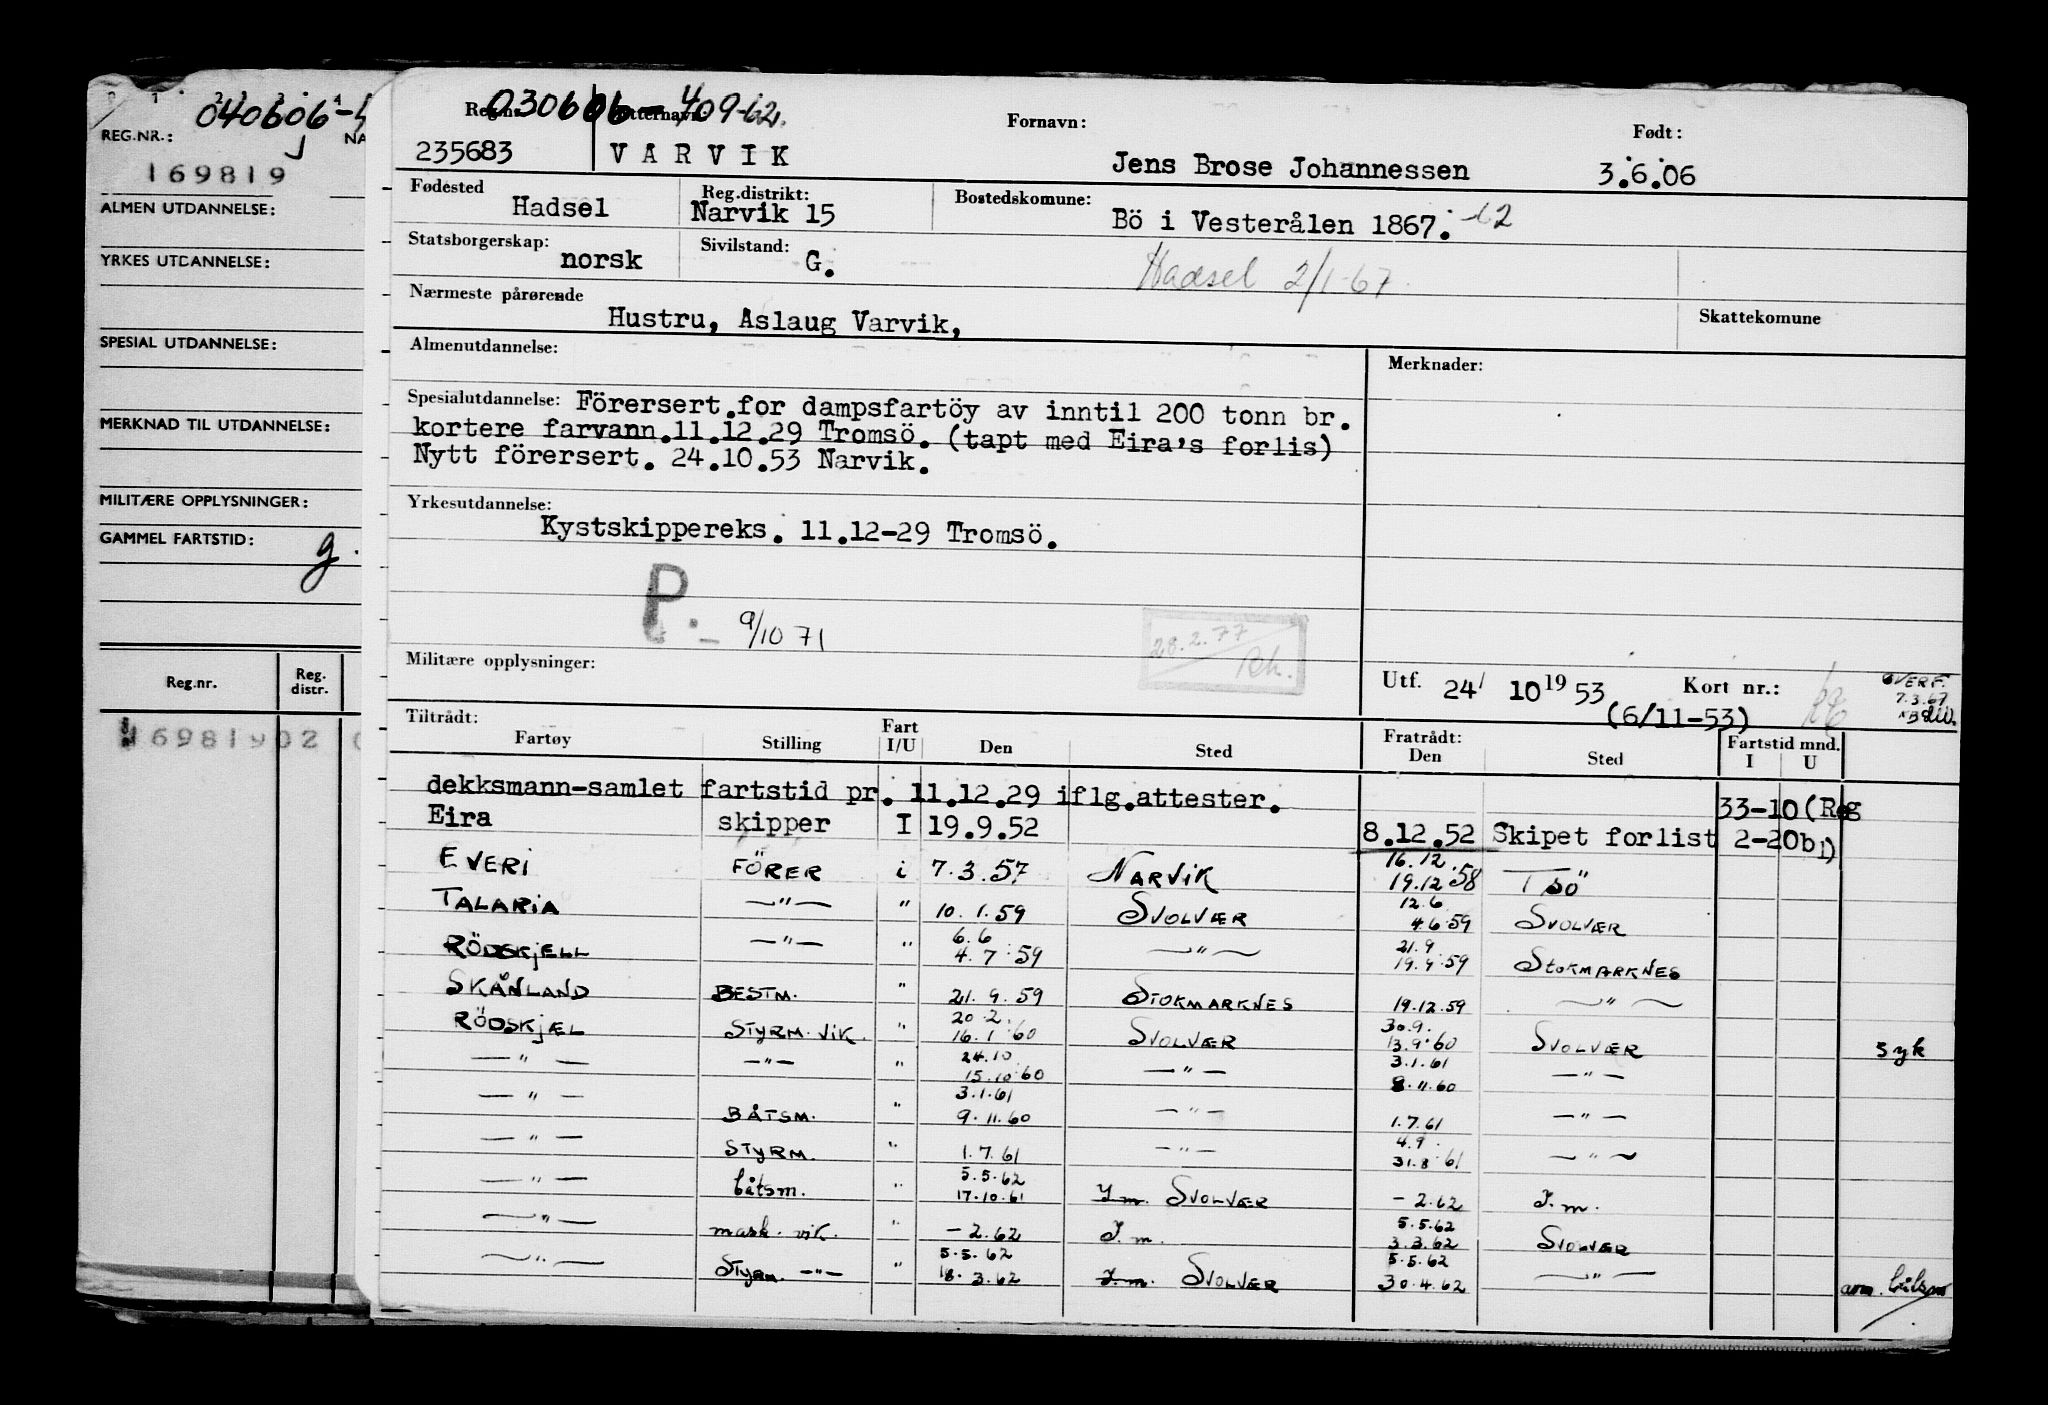 040606-
REG.NR.:
NA
169819
ALMEN UTDANNELSE:
YRKES UTDANNELSE:
SPESIAL UTDANNELSE:
MERKNAD TIL UTDANNELSE:
MILITÆRE OPPLYSNINGER:
GAMMEL FARTSTID: g.
Reg.nr. Reg. distr.
16981902
030606-409-62.
Reg.nr. Etternavn: Fornavn: Født:
235683 VARVIK Jens Brose Johannessen 3.6.06
Fødested Reg.distrikt: Bostedskomune:
Hadsel Narvik 15 Bö i Vesterålen 1867.
Statsborgerskap: norsk Sivilstand: G.
Hadsel 2/1-67.
Nærmeste pårørende Skattekomune
Hustru, Aslaug Varvik,
Almenutdannelse: Merknader:
Spesialutdannelse: Förersert.for dampsfartöy av inntil 200 tonn br.
kortere farvann.11.12.29 Tromsö. (tapt med Eira's forlis)
Nytt förersert. 24.10.53 Narvik.
Yrkesutdannelse:
Kystskippereks. 11.12-29 Tromsö.
P. 9/10 71
28.2.77
Militære opplysninger:
Utf. 24/ 10 19 53 Kort nr.:
(6/11-53)
OVERF.
7.3.67
Tiltrådt: Fratrådt: Fartstid mnd.
Fartøy Stilling Fart I/U Den Sted Den Sted I U
dekksmann-samlet fartstid pr. 11.12.29 iflg.attester. 33-10 (Reg
Eira skipper I 19.9.52 8.12.52 Skipet forlist 2-20b1)
EVERI FÖRER i 7.3.57 NARVIK 16.12 19.12.58 TSÖ
TALARIA —"— " 10.1.59 SVOLVÆR 12.6 4.6.59 SVOLVÆR
RÖDSKJELL —"— " 6.6 4.7.59 —"— 21.9 19.9.59 STOKMARKNES
SKÅNLAND BESTM. " 21.9.59 STOKMARKNES 19.12.59 —"—
RÖDSKJÆL STYRM. VIK. " 20.2. 16.1.60 SVOLVÆR 30.9. 13.9.60 SVOLVÆR syk
—"— —"— " 24.10 15.10.60 —"— 3.1.61 8.11.60 —"—
—"— BÅTSM. " 3.1.61 9.11.60 —"— 1.7.61 —"—
—"— STYRM. " 1.7.61 —"— 4.9. 31.8.61 —"—
—"— båtsm. " 5.5.62 17.10.61 I.m. SVOLVÆR -2.62 I.m.
—"— mask. vik. " -2.62 I.m. 5.5.62 3.3.62 SVOLVÆR
—"— STYRM. —"— " 5.5.62 18.3.62 I.m. SVOLVÆR 5.5.62 30.4.62 —"— båtsm